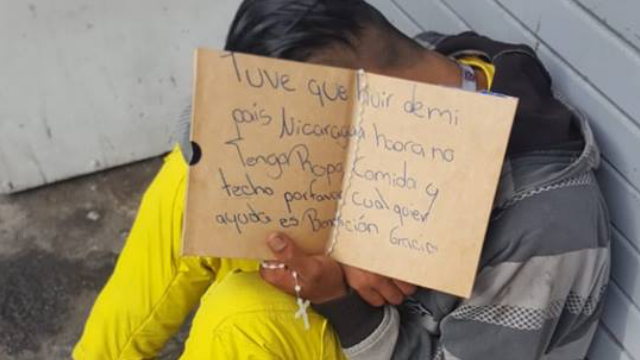 Tuve que Huir de mi
país Nicaragua haora no
Tengo Ropa Comida y
techo por favor cualquier
ayuda es Bendición Gracias